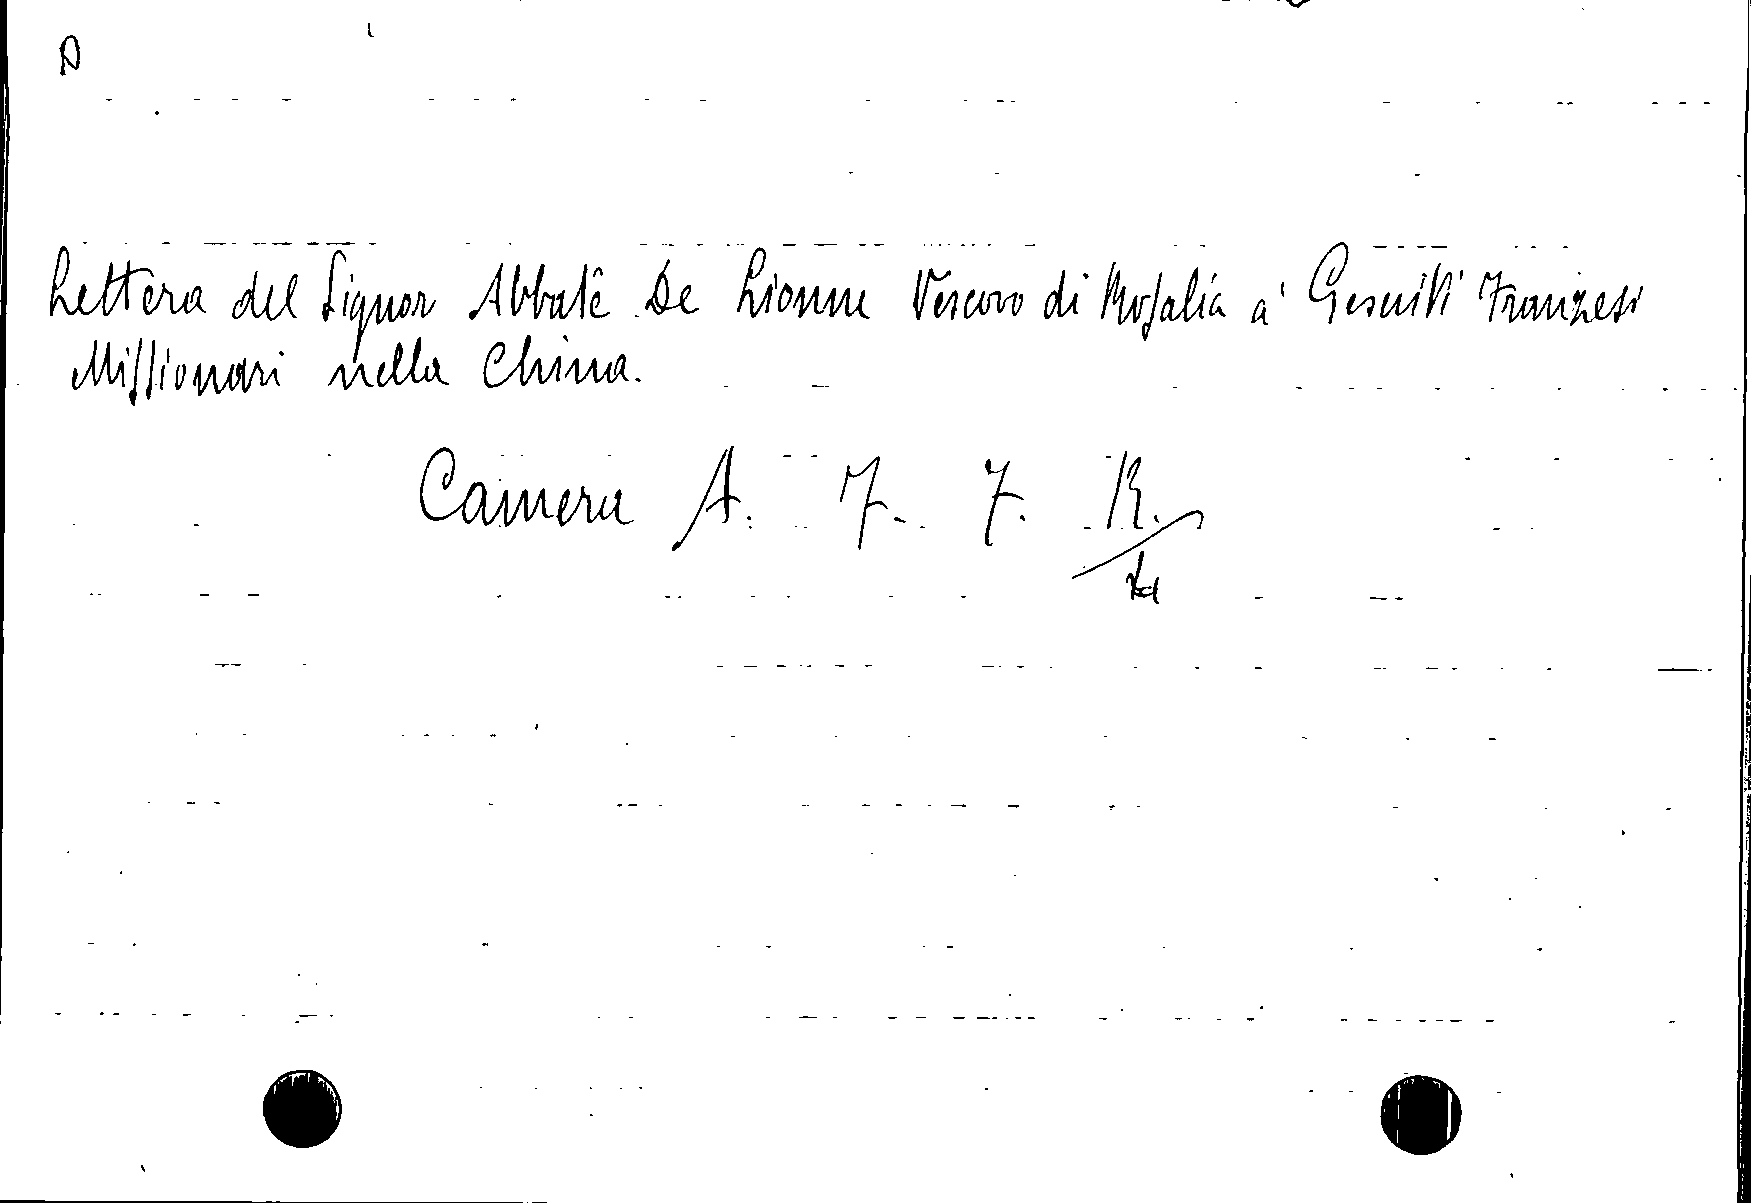 D
Lettera del Signor Abbate De Lionne Vescovo di Rosalia a' Gesuiti Franzesi
Missionari nella China.
Camera A. 7. 7. R.